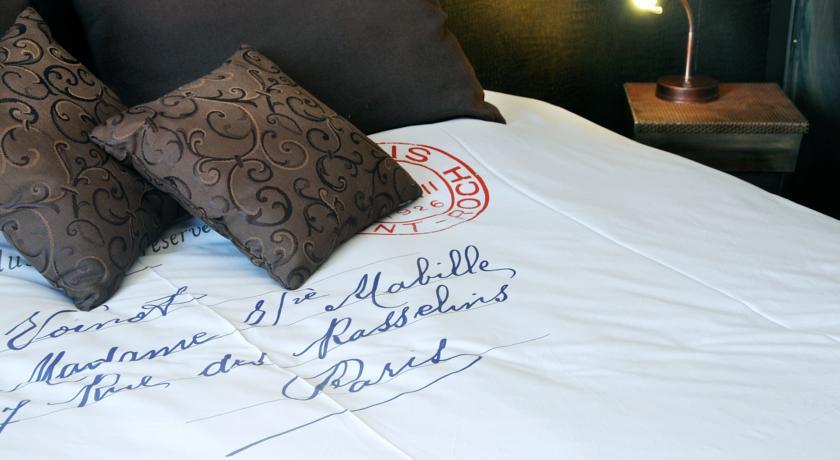 IS
II
1926
ST-ROCH
reserve
Voinot
Madame Vve Mabille
7 Rue des Rasselins
Paris